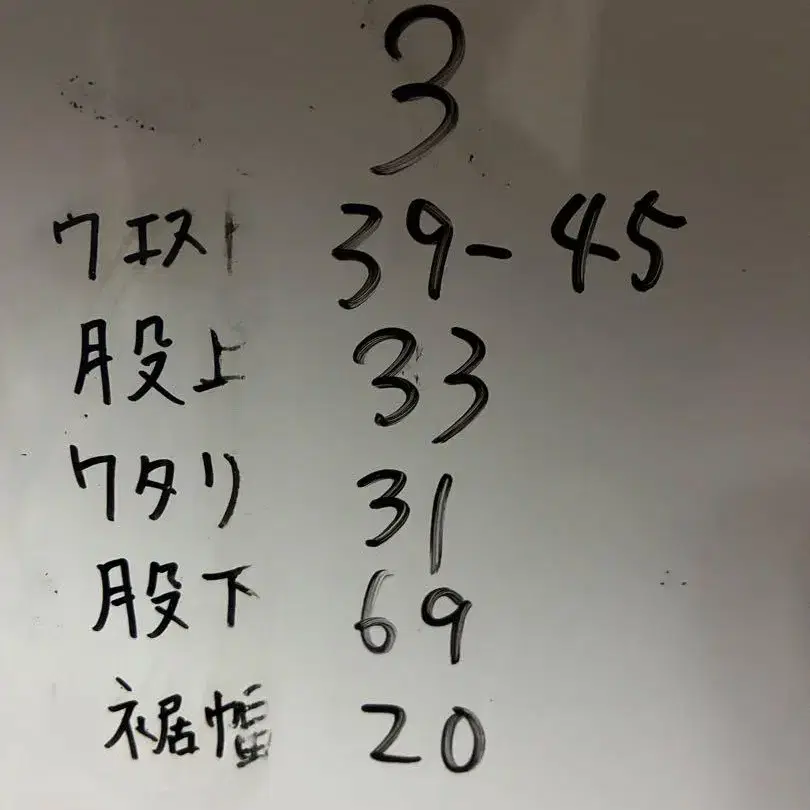 3
ウエスト 39-45
股上 33
ワタリ 31
股下 69
裾幅 20